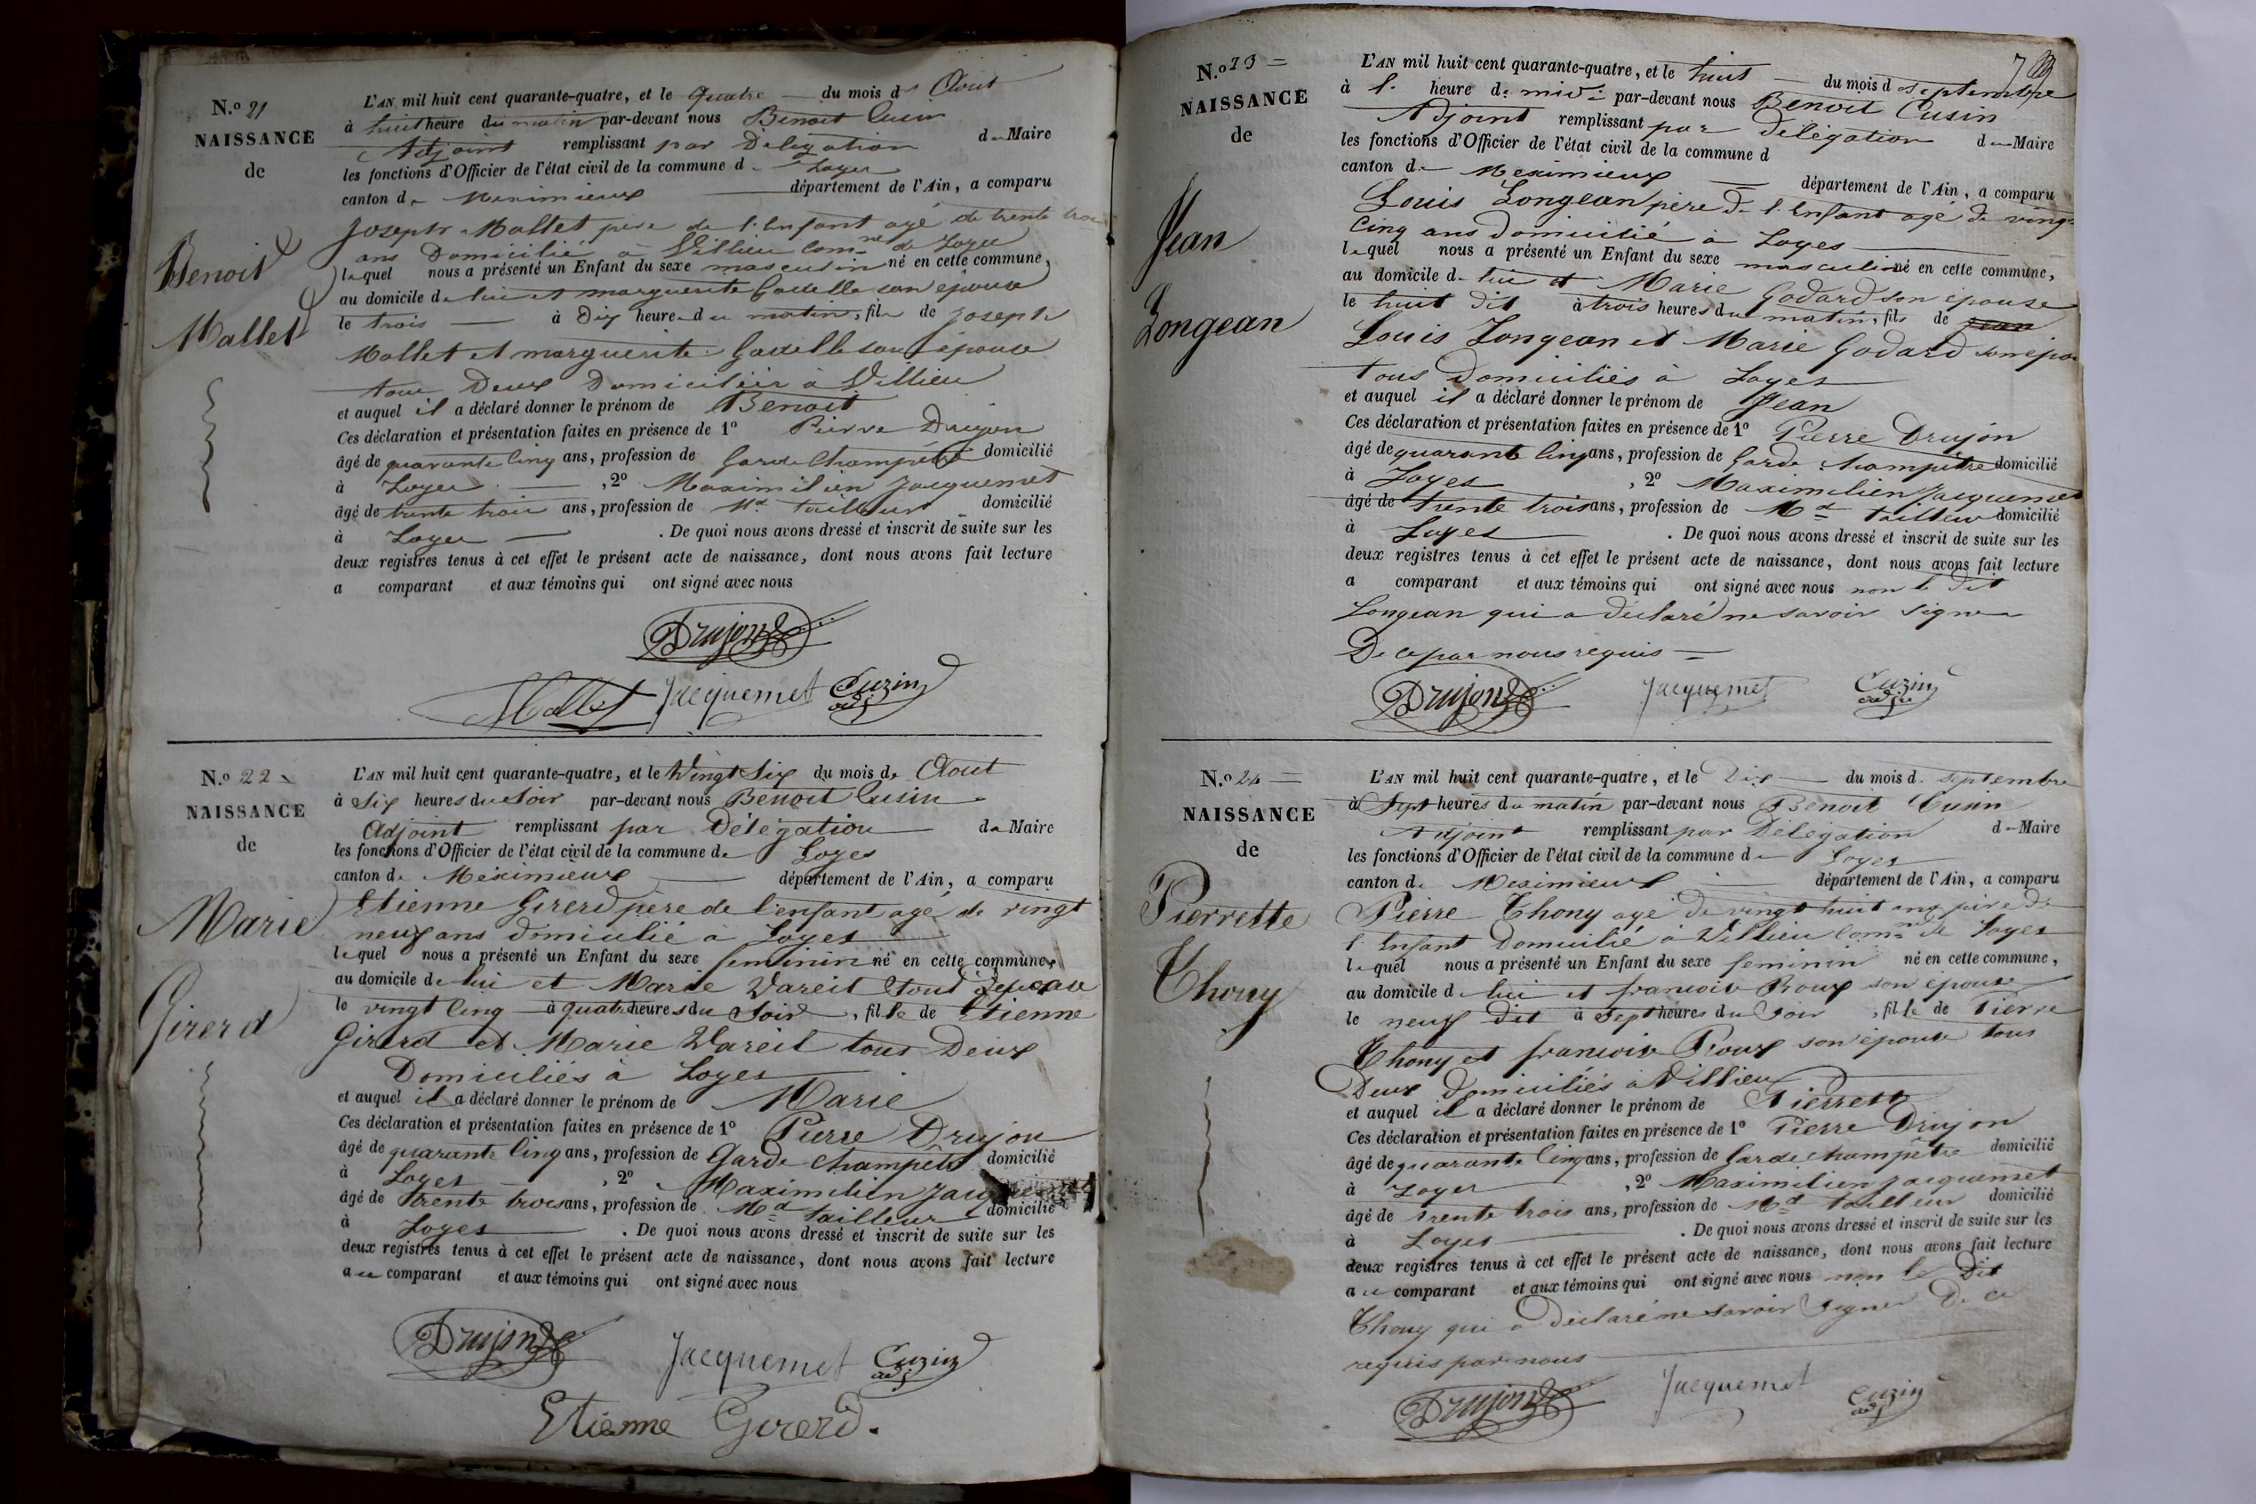 N.o 21
NAISSANCE
de
Benoit
Mallet
L'AN mil huit cent quarante-quatre, et le quatre du mois d'Aout
à huit heure du matin par-devant nous Benoit Cusin
Adjoint remplissant par Délégation du Maire
les fonctions d'Officier de l'état civil de la commune de Loyes
canton de Meximieux département de l'Ain, a comparu
Joseph Mallet père de l'Enfant agé de trente trois
ans Domicilié à Villieu Com.ne de Loyes
lequel nous a présenté un Enfant du sexe masculin né en cette commune,
au domicile de lui et marguerite son épouse
le trois à Dix heures du matin, fils de Joseph
Mallet et marguerite son épouse
tous Deux Domiciliés à Villieu
et auquel il a déclaré donner le prénom de Benoit
Ces déclaration et présentation faites en présence de 1o Pierre Drujon
âgé de quarante Cinq ans, profession de Garde Champêtre domicilié
à Loyes, 2o Maximilien Jacquemet
âgé de trente trois ans, profession de Md tailleur domicilié
à Loyes. De quoi nous avons dressé et inscrit de suite sur les
deux registres tenus à cet effet le présent acte de naissance, dont nous avons fait lecture
a comparant et aux témoins qui ont signé avec nous
Drujon
Mallet Jacquemet Cuzin
adj
N.o 22
NAISSANCE
de
Marie
Girerd
L'AN mil huit cent quarante-quatre, et le Vingt Six du mois de Aout
à Six heures du Soir par-devant nous Benoit Cusin
Adjoint remplissant par Délégation du Maire
les fonctions d'Officier de l'état civil de la commune de Loyes
canton de Méximieux département de l'Ain, a comparu
Etienne Girerd père de l'enfant agé de vingt
neuf ans domicilié à Loyes
lequel nous a présenté un Enfant du sexe feminin né en cette commune,
au domicile de lui et Marie Vareil tous Deux
le vingt Cinq à quatre heures du Soir, fille de Etienne
Girerd et Marie Vareil tous Deux
Domiciliés à Loyes
et auquel il a déclaré donner le prénom de Marie
Ces déclaration et présentation faites en présence de 1o Pierre Drujon
âgé de quarante Cinq ans, profession de Garde Champêtre domicilié
à Loyes, 2o Maximilien Jacquemet
âgé de trente trois ans, profession de Md tailleur domicilié
à Loyes. De quoi nous avons dressé et inscrit de suite sur les
deux registres tenus à cet effet le présent acte de naissance, dont nous avons fait lecture
au comparant et aux témoins qui ont signé avec nous
Drujon Jacquemet Cuzin
adj
Etienne Girerd.
N.o 23
NAISSANCE
de
Jean
Longean
L'AN mil huit cent quarante-quatre, et le huit du mois d septembre
à 1. heure de midi par-devant nous Benoit Cusin
Adjoint remplissant par Délégation du Maire
les fonctions d'Officier de l'état civil de la commune d
canton de Meximieux département de l'Ain, a comparu
Louis Longean père de l'Enfant agé de vingt
Cinq ans domicilié à Loyes
lequel nous a présenté un Enfant du sexe masculin né en cette commune,
au domicile de lui et Marie Godard son épouse
le huit dit à trois heures du matin, fils de Jean
Louis Longean et Marie Godard son épou
tous Domiciliés à Loyes
et auquel il a déclaré donner le prénom de Jean
Ces déclaration et présentation faites en présence de 1o Pierre Drujon
âgé de quarante Cinq ans, profession de Garde champêtre domicilié
à Loyes, 2o Maximilien Jacquemet
âgé de trente trois ans, profession de Md tailleur domicilié
à Loyes. De quoi nous avons dressé et inscrit de suite sur les
deux registres tenus à cet effet le présent acte de naissance, dont nous avons fait lecture
a comparant et aux témoins qui ont signé avec nous non le dit
Longean qui a déclaré ne savoir signer
De ce par nous requis
Drujon Jacquemet Cuzin
adj
N.o 24
NAISSANCE
de
Pierrette
Thony
L'AN mil huit cent quarante-quatre, et le Dix du mois d septembre
à Sept heures du matin par-devant nous Benoit Cusin
Adjoint remplissant par Délégation du Maire
les fonctions d'Officier de l'état civil de la commune de Loyes
canton de Meximieux département de l'Ain, a comparu
Pierre Thony agé de vingt huit ans père de
l'Enfant Domicilié à Villieu Com.ne de Loyes
lequel nous a présenté un Enfant du sexe feminin né en cette commune,
au domicile d lui et francoise Roux son épouse
le neuf dit à sept heures du Soir, fille de Pierre
Thony et francoise Roux son épouse tous
Deux Domiciliés à Villieu
et auquel il a déclaré donner le prénom de Pierrette
Ces déclaration et présentation faites en présence de 1o Pierre Drujon
âgé de quarante Cinq ans, profession de Garde champêtre domicilié
à Loyes, 2o Maximilien Jacquemet
âgé de trente trois ans, profession de Md tailleur domicilié
à Loyes. De quoi nous avons dressé et inscrit de suite sur les
deux registres tenus à cet effet le présent acte de naissance, dont nous avons fait lecture
au comparant et aux témoins qui ont signé avec nous non le Dit
Thony qui a Déclaré ne savoir signer De ce
requis par nous
Drujon Jacquemet Cuzin
adj